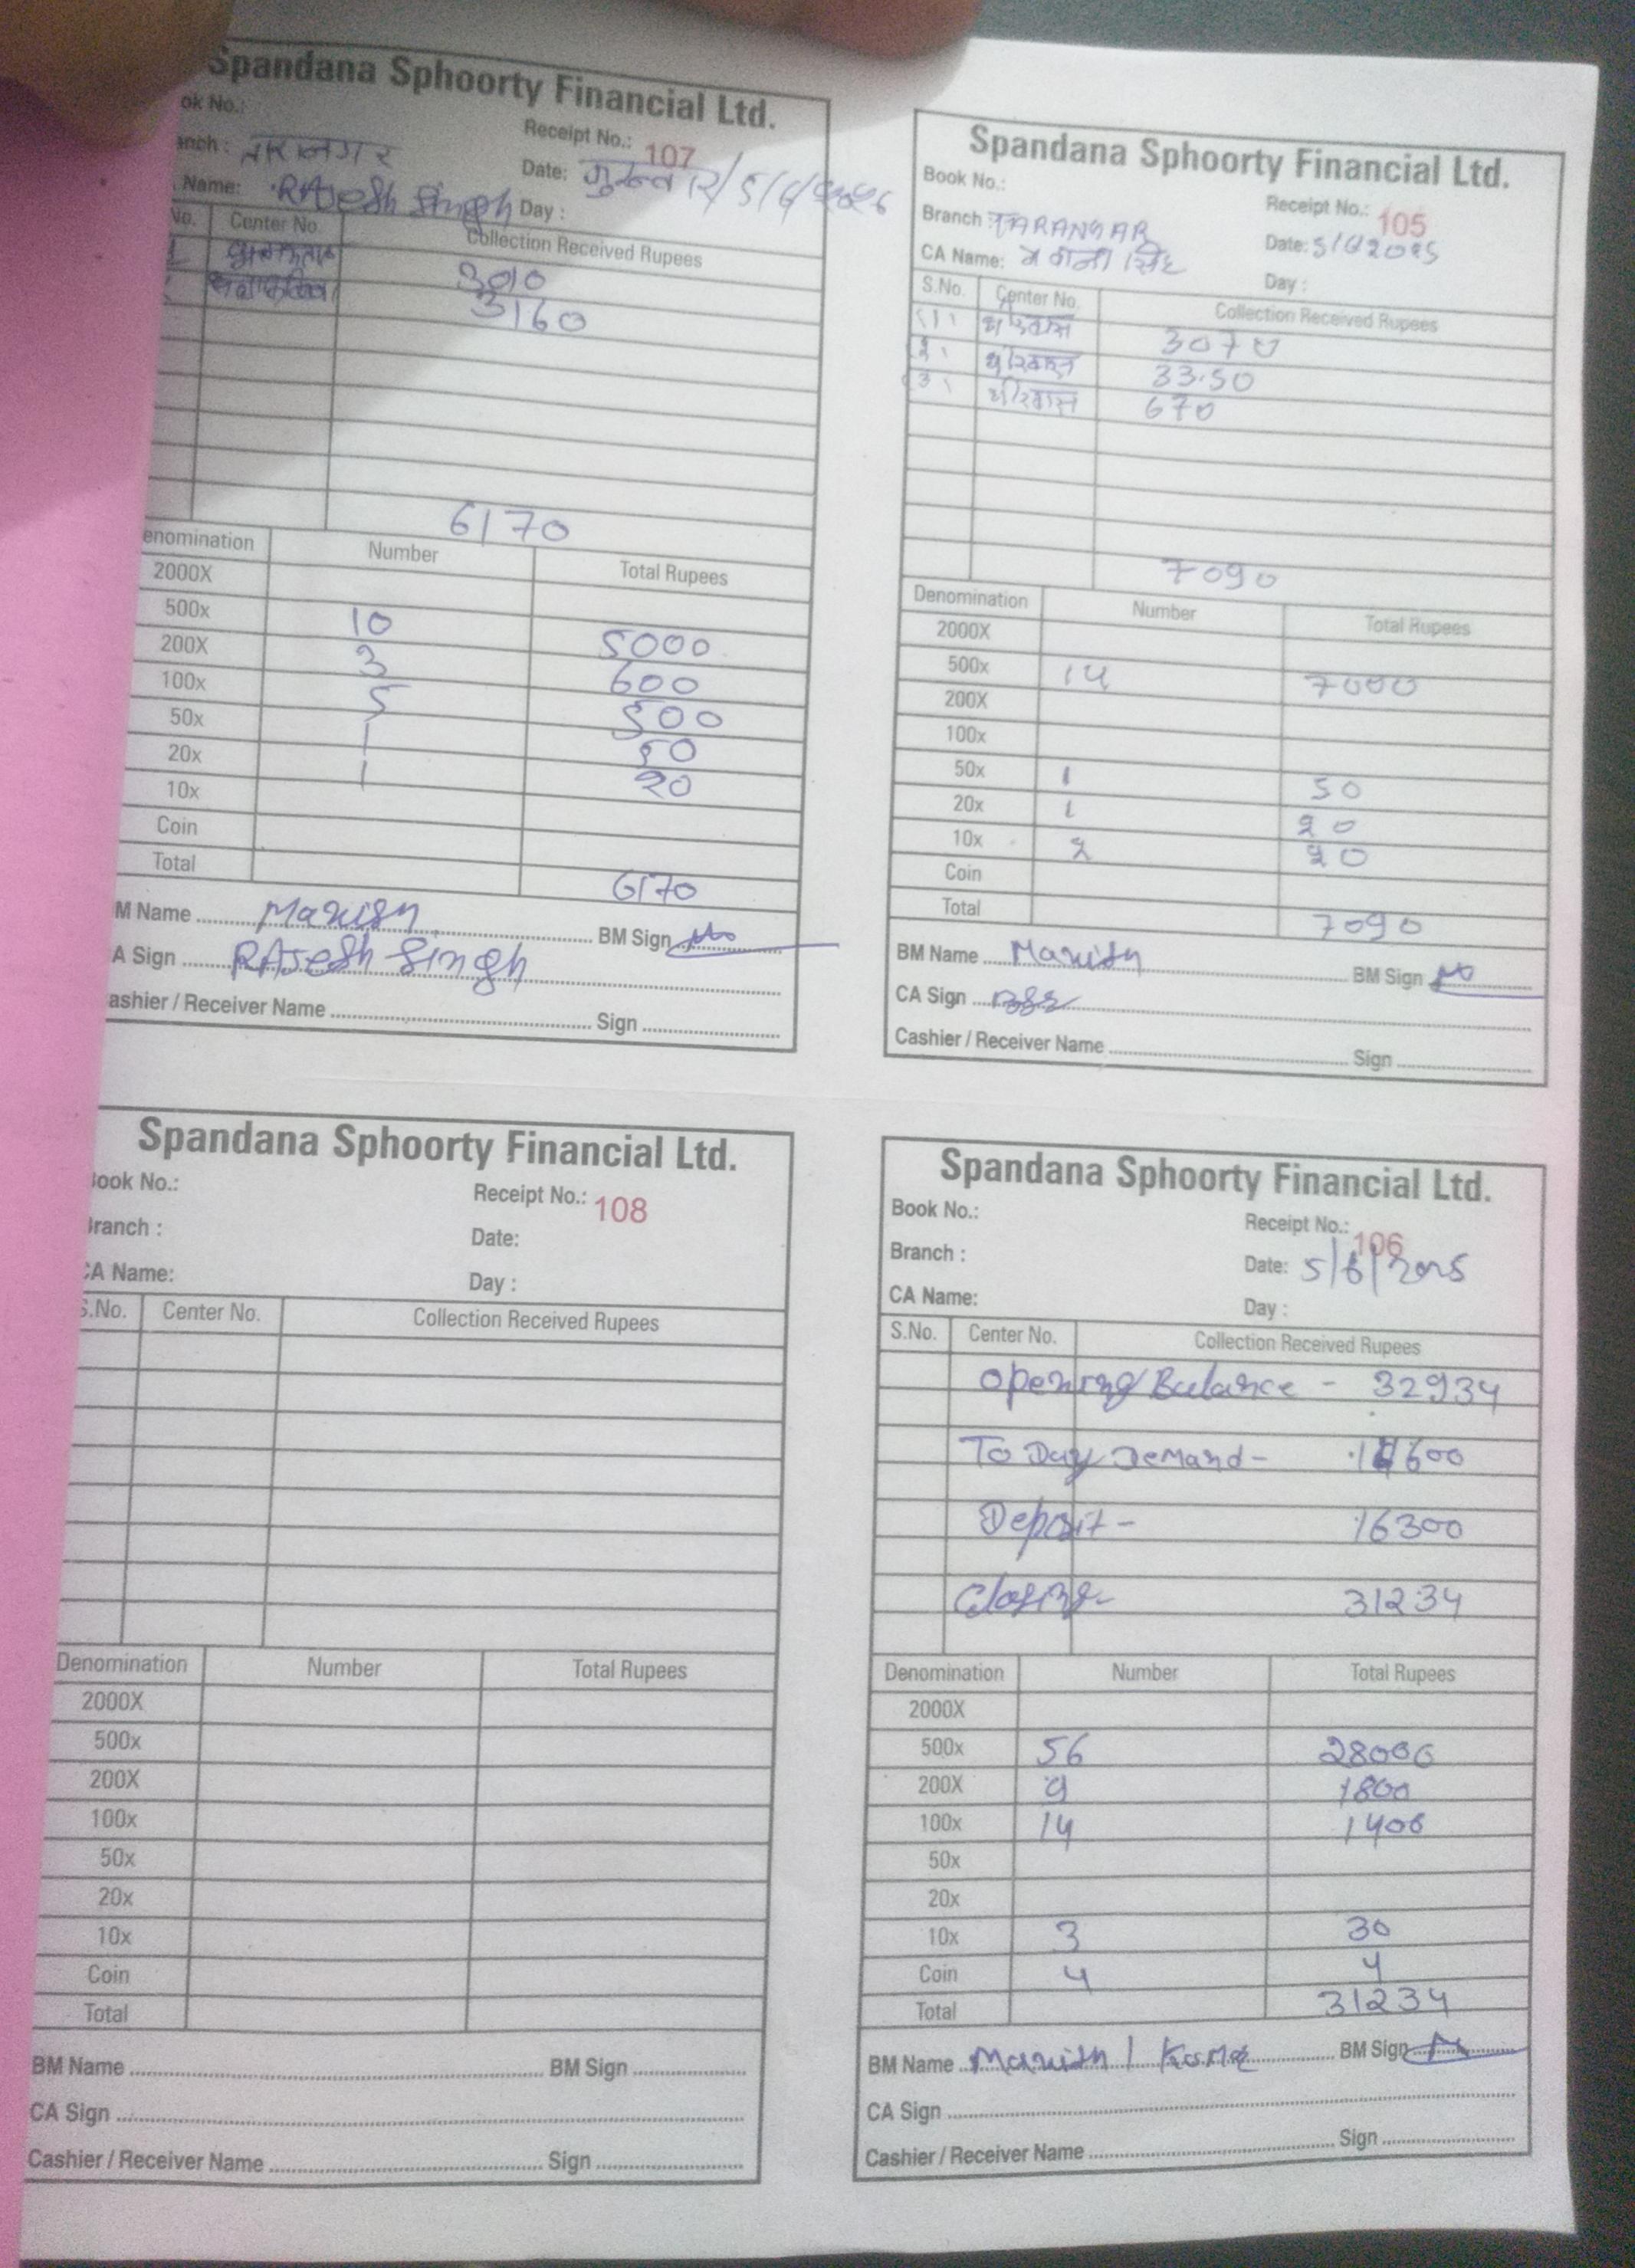 Spandana Sphoorty Financial Ltd.
ok No.:
Receipt No.: 107
anch : तारानगर
Date: गुरुवार/5/6/2025
Name: RAJeSh Singh Day :
No. Center No. Collection Received Rupees
3010
3160
6170
enomination Number Total Rupees
2000X
500x 10 5000
200X 3 600
100x 5 500
50x 1 50
20x 1 20
10x
Coin
Total 6170
M Name Manish BM Sign
A Sign RAJeSh Singh
ashier / Receiver Name Sign
Spandana Sphoorty Financial Ltd.
Book No.:
Receipt No.: 105
Branch : TARANGAR
Date: 5/6/2025
CA Name: भवानी सिंह
Day :
S.No. Center No. Collection Received Rupees
(1) 3070
2 धीरवास 3350
(3) धीरवास 670
7090
Denomination Number Total Rupees
2000X
500x 14 7000
200X
100x
50x 1 50
20x 1 20
10x 2 20
Coin
Total 7090
BM Name Manish BM Sign
CA Sign
Cashier / Receiver Name Sign
Spandana Sphoorty Financial Ltd.
ook No.:
Receipt No.: 108
Branch :
Date:
CA Name:
Day :
S.No. Center No. Collection Received Rupees
Denomination Number Total Rupees
2000X
500x
200X
100x
50x
20x
10x
Coin
Total
BM Name BM Sign
CA Sign
Cashier / Receiver Name Sign
Spandana Sphoorty Financial Ltd.
Book No.:
Receipt No.: 106
Branch :
Date: 5/6/2025
CA Name:
Day :
S.No. Center No. Collection Received Rupees
Opening Balance - 32934
To Day Demand - 14600
Deposit - 16300
Closing - 31234
Denomination Number Total Rupees
2000X
500x 56 28000
200X 9 1800
100x 14 1400
50x
20x
10x 3 30
Coin 4 4
Total 31234
BM Name Manish / BM Sign
CA Sign
Cashier / Receiver Name Sign